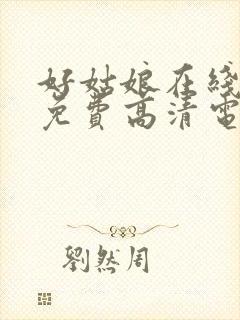 好姑娘在线
免费高清电
劉然周